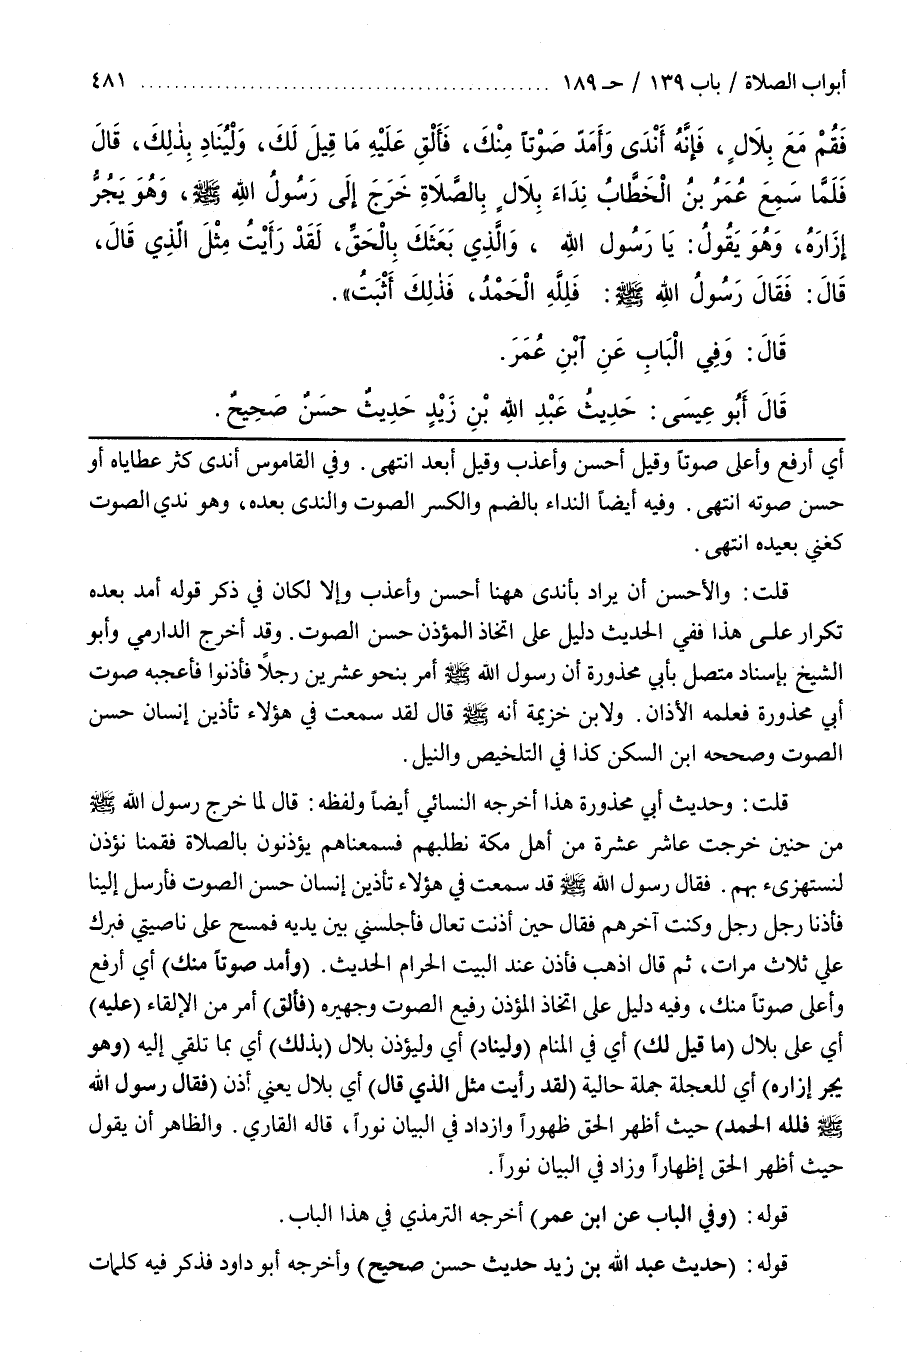 أبواب الصلاة / باب ١٣٩ / حـ ١٨٩ ................................................ ٤٨١
فَقُمْ مَعَ بِلَالٍ، فَإِنَّهُ أَنْدَى وَأَمَدّ صَوْتاً مِنْكَ، فَأَلْقِ عَلَيْهِ مَا قِيلَ لَكَ، وَلْيُنَادِ بِذٰلِكَ، قَالَ
فَلَمَّا سَمِعَ عُمَرُ بنُ الْخَطَّابُ نِدَاءَ بِلَالٍ بِالصَّلَاةِ خَرَجَ إِلَى رَسُولُ اللهِ ﷺ، وَهُوَ يَجُرُّ
إِزَارَهُ، وَهُوَ يَقُولُ: يَا رَسُول اللهِ ، وَالَّذِي بَعَثَكَ بِالْحَقِّ، لَقَدْ رَأَيْتُ مِثْلَ الّذِي قَالَ،
قَالَ: فَقَالَ رَسُولُ اللهِ ﷺ: فَلِلَّهِ الْحَمْدُ، فَذٰلِكَ أَثْبَتُ».
قَالَ: وَفِي الْبَابِ عَنِ ٱبْنِ عُمَرَ.
قَالَ أَبُو عِيسَى: حَدِيثُ عَبْدِ اللهِ بْنِ زَيْدٍ حَدِيثٌ حسَنٌ صَحِيحٌ.
أي أرفع وأعلى صوتاً وقيل أحسن وأعذب وقيل أبعد انتهى. وفي القاموس أندى كثر عطاياه أو
حسن صوته انتهى. وفيه أيضاً النداء بالضم والكسر الصوت والندى بعده، وهو ندي الصوت
كغني بعيده انتهى.
قلت: والأحسن أن يراد بأندى ههنا أحسن وأعذب وإلا لكان في ذكر قوله أمد بعده
تكرار على هذا ففي الحديث دليل على اتخاذ المؤذن حسن الصوت. وقد أخرج الدارمي وأبو
الشيخ بإسناد متصل بأبي محذورة أن رسول الله ﷺ أمر بنحو عشرين رجلاً فأذنوا فأعجبه صوت
أبي محذورة فعلمه الأذان. ولابن خزيمة أنه ﷺ قال لقد سمعت في هؤلاء تأذين إنسان حسن
الصوت وصححه ابن السكن كذا في التلخيص والنيل.
قلت: وحديث أبي محذورة هذا أخرجه النسائي أيضاً ولفظه: قال لما خرج رسول الله ﷺ
من حنين خرجت عاشر عشرة من أهل مكة نطلبهم فسمعناهم يؤذنون بالصلاة فقمنا نؤذن
لنستهزىء بهم. فقال رسول الله ﷺ قد سمعت في هؤلاء تأذين إنسان حسن الصوت فأرسل إلينا
فأذنا رجل رجل وكنت آخرهم فقال حين أذنت تعال فأجلسني بين يديه فمسح على ناصيتي فبرك
علي ثلاث مرات، ثم قال اذهب فأذن عند البيت الحرام الحديث. (وأمد صوتاً منك) أي أرفع
وأعلى صوتاً منك، وفيه دليل على اتخاذ المؤذن رفيع الصوت وجهيره (فألق) أمر من الإلقاء (عليه)
أي على بلال (ما قيل لك) أي في المنام (وليناد) أي وليؤذن بلال (بذلك) أي بما تلقي إليه (وهو
يجر إزاره) أي للعجلة جملة حالية (لقد رأيت مثل الذي قال) أي بلال يعني أذن (فقال رسول الله
ﷺ فلله الحمد) حيث أظهر الحق ظهوراً وازداد في البيان نوراً، قاله القاري. والظاهر أن يقول
حيث أظهر الحق إظهاراً وزاد في البيان نوراً.
قوله: (وفي الباب عن ابن عمر) أخرجه الترمذي في هذا الباب.
قوله: (حديث عبد الله بن زيد حديث حسن صحيح) وأخرجه أبو داود فذكر فيه كلمات